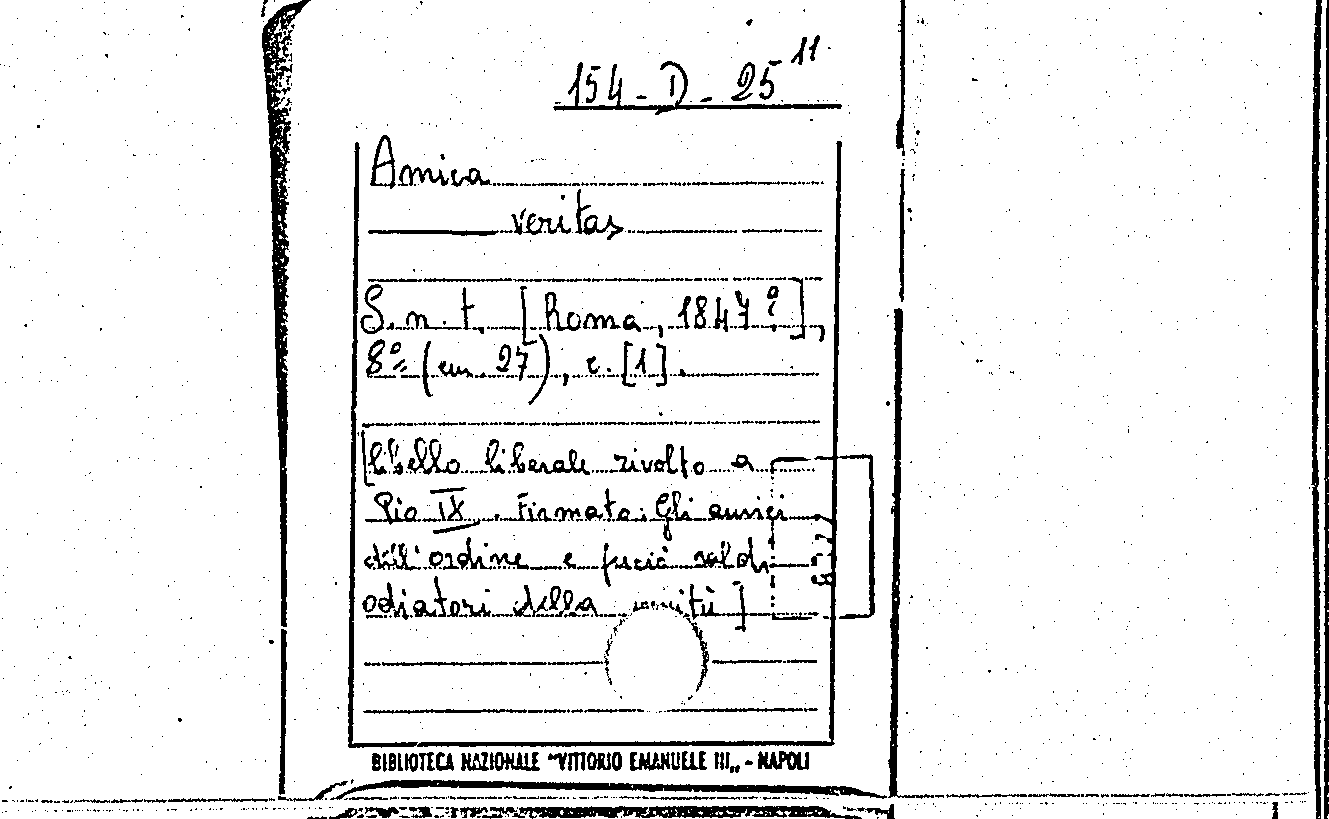 154-D-25 11
Amica
veritas
S. n. t. [Roma, 1847?],
8º (cm. 27), c. [1].
[libello liberale rivolto a
Pio IX. Firmato: Gli amici
dell'ordine e perciò saldi
odiatori della
BIBLIOTECA NAZIONALE "VITTORIO EMANUELE III„ - NAPOLI